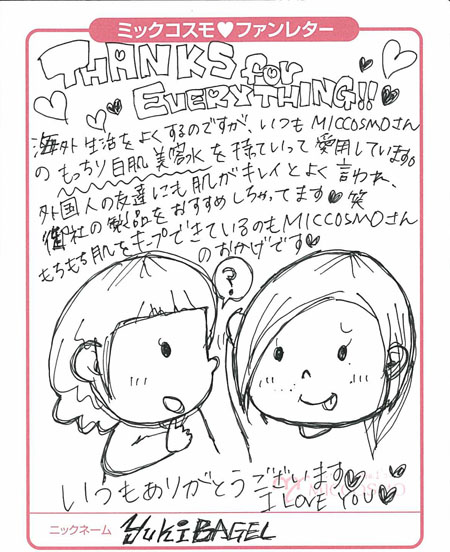 ミックコスモ♥ファンレター
THANKS for
EVERYTHING!!
海外生活をよくするのですが、いつもMICCOSMOさん
のもっちり白肌美容水を持ていって愛用しています。
外国人の友達にも肌がキレイとよく言われ、
御社の製品をおすすめしちゃってます♥笑
もちもち肌をキープできているのもMICCOSMOさん
のおかげです♥
?
いつもありがとうございます♥
I LOVE YOU♥
ニックネーム YukiBAGEL